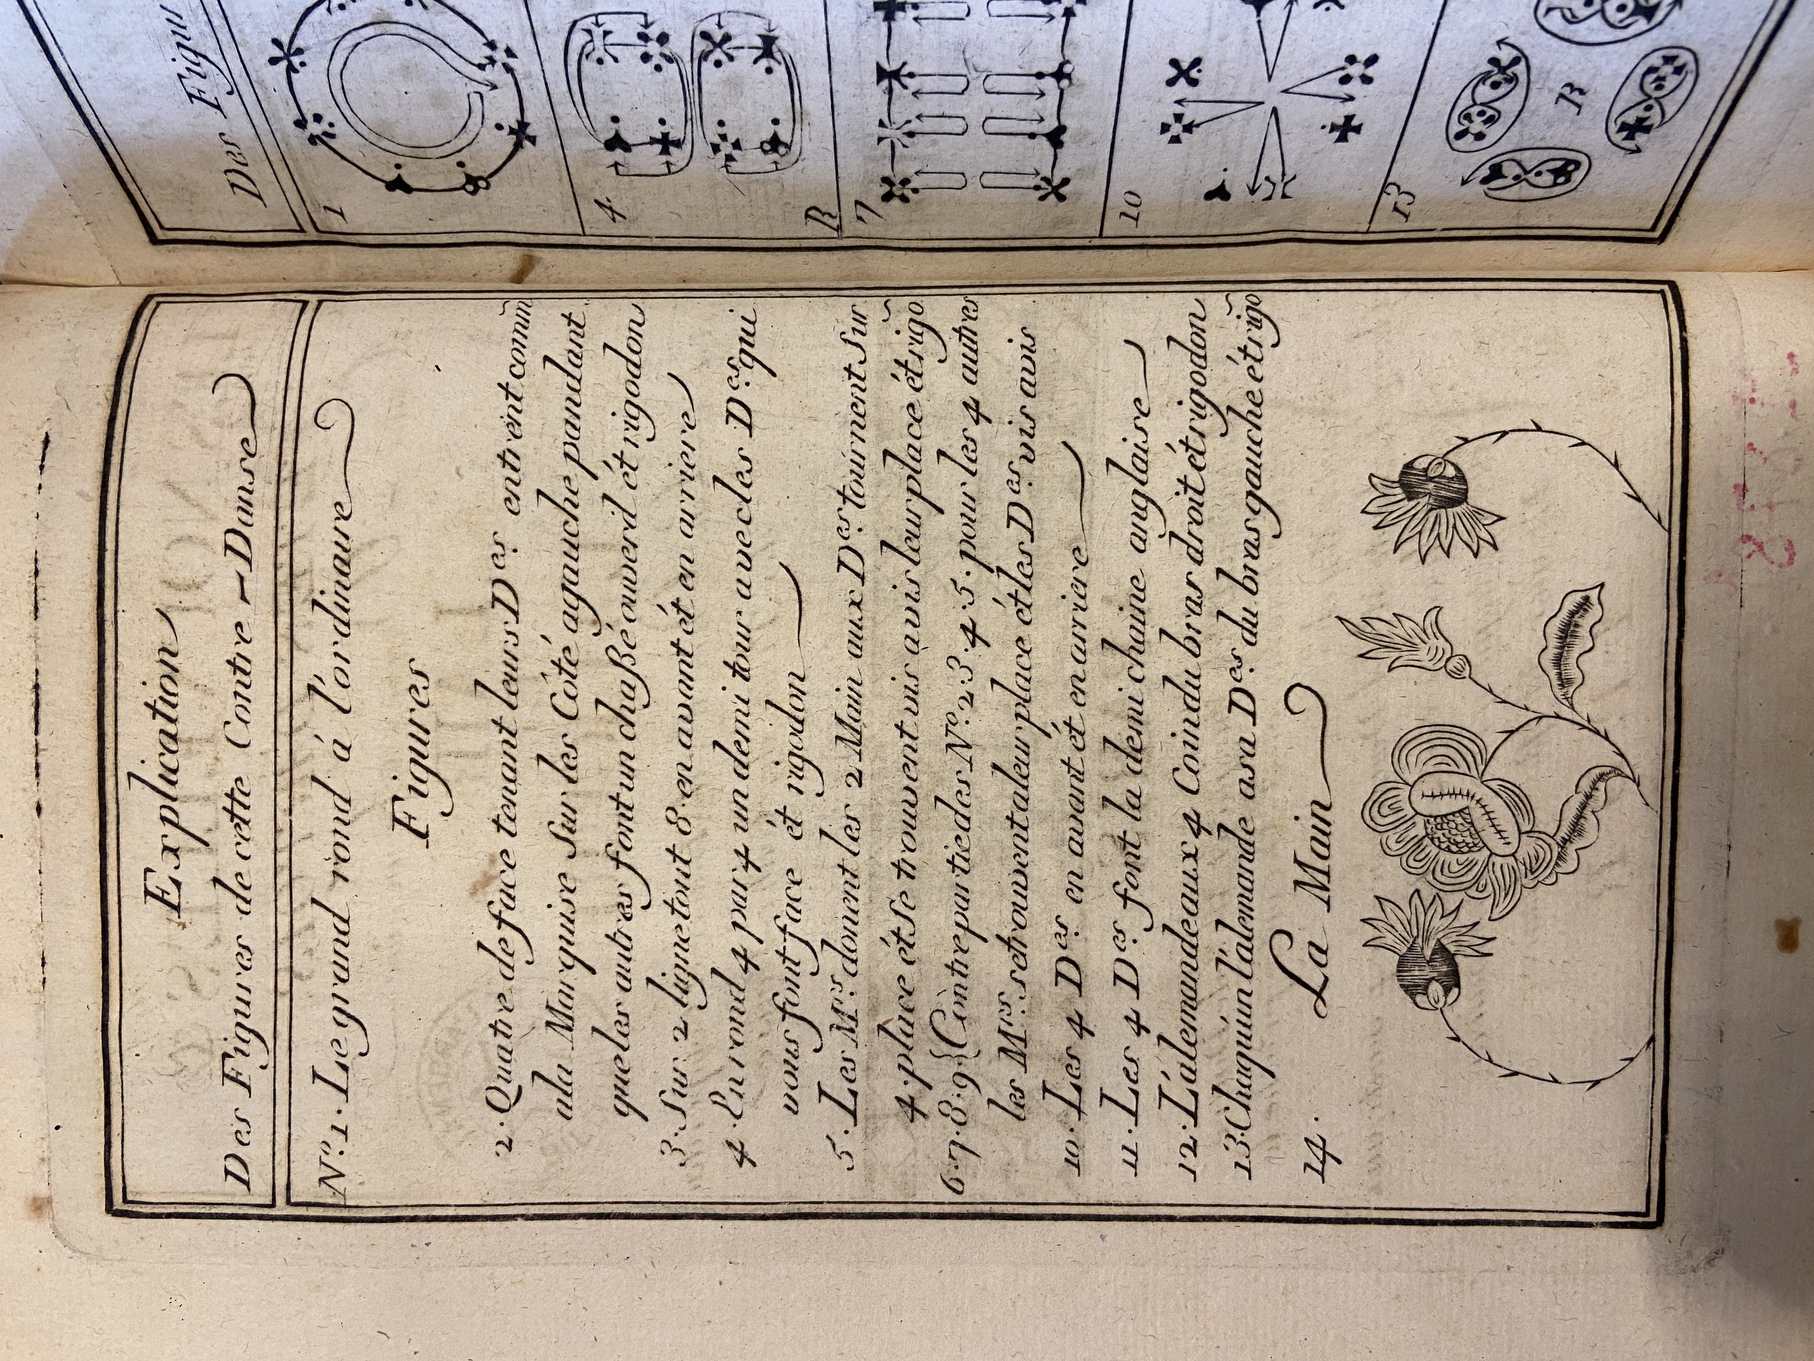 Explication
Des Figures de cette Contre-Danse
Nº. 1. Le grand rond á l'ordinaire
Figures
2. Quatre de face tenant leurs D.es entrent comm̃
ala Marquise sur les Côté agauche pandant
que les autres font un chaßé ouveril ét rigodon
3. Sur 2 ligne tout 8. en avant ét en arriere
4. En rond 4 par 4 un demi tour avec les D.es qui
vous font face ét rigodon
5. Les M.rs donent les 2 Main aux D.es tournent sur
4. place ét se trouvent vis avis leur place ét rigõ
6. 7. 8. 9 { Contre partie des Nº. 2. 3. 4. 5. pour les 4 autres
les M.rs se trouvent a leur place ét les D.es vis avis
10. Les 4 D.es en avant ét en arriere
11. Les 4 D.es font la demi chaine anglaise
12. L'alemande aux 4 Coin du bras droit ét rigodon
13. Chaquún l'alemande asa D.es du bras gauche ét rigõ
14. La Main
Des Figu
1
4
R
7
10
13
R